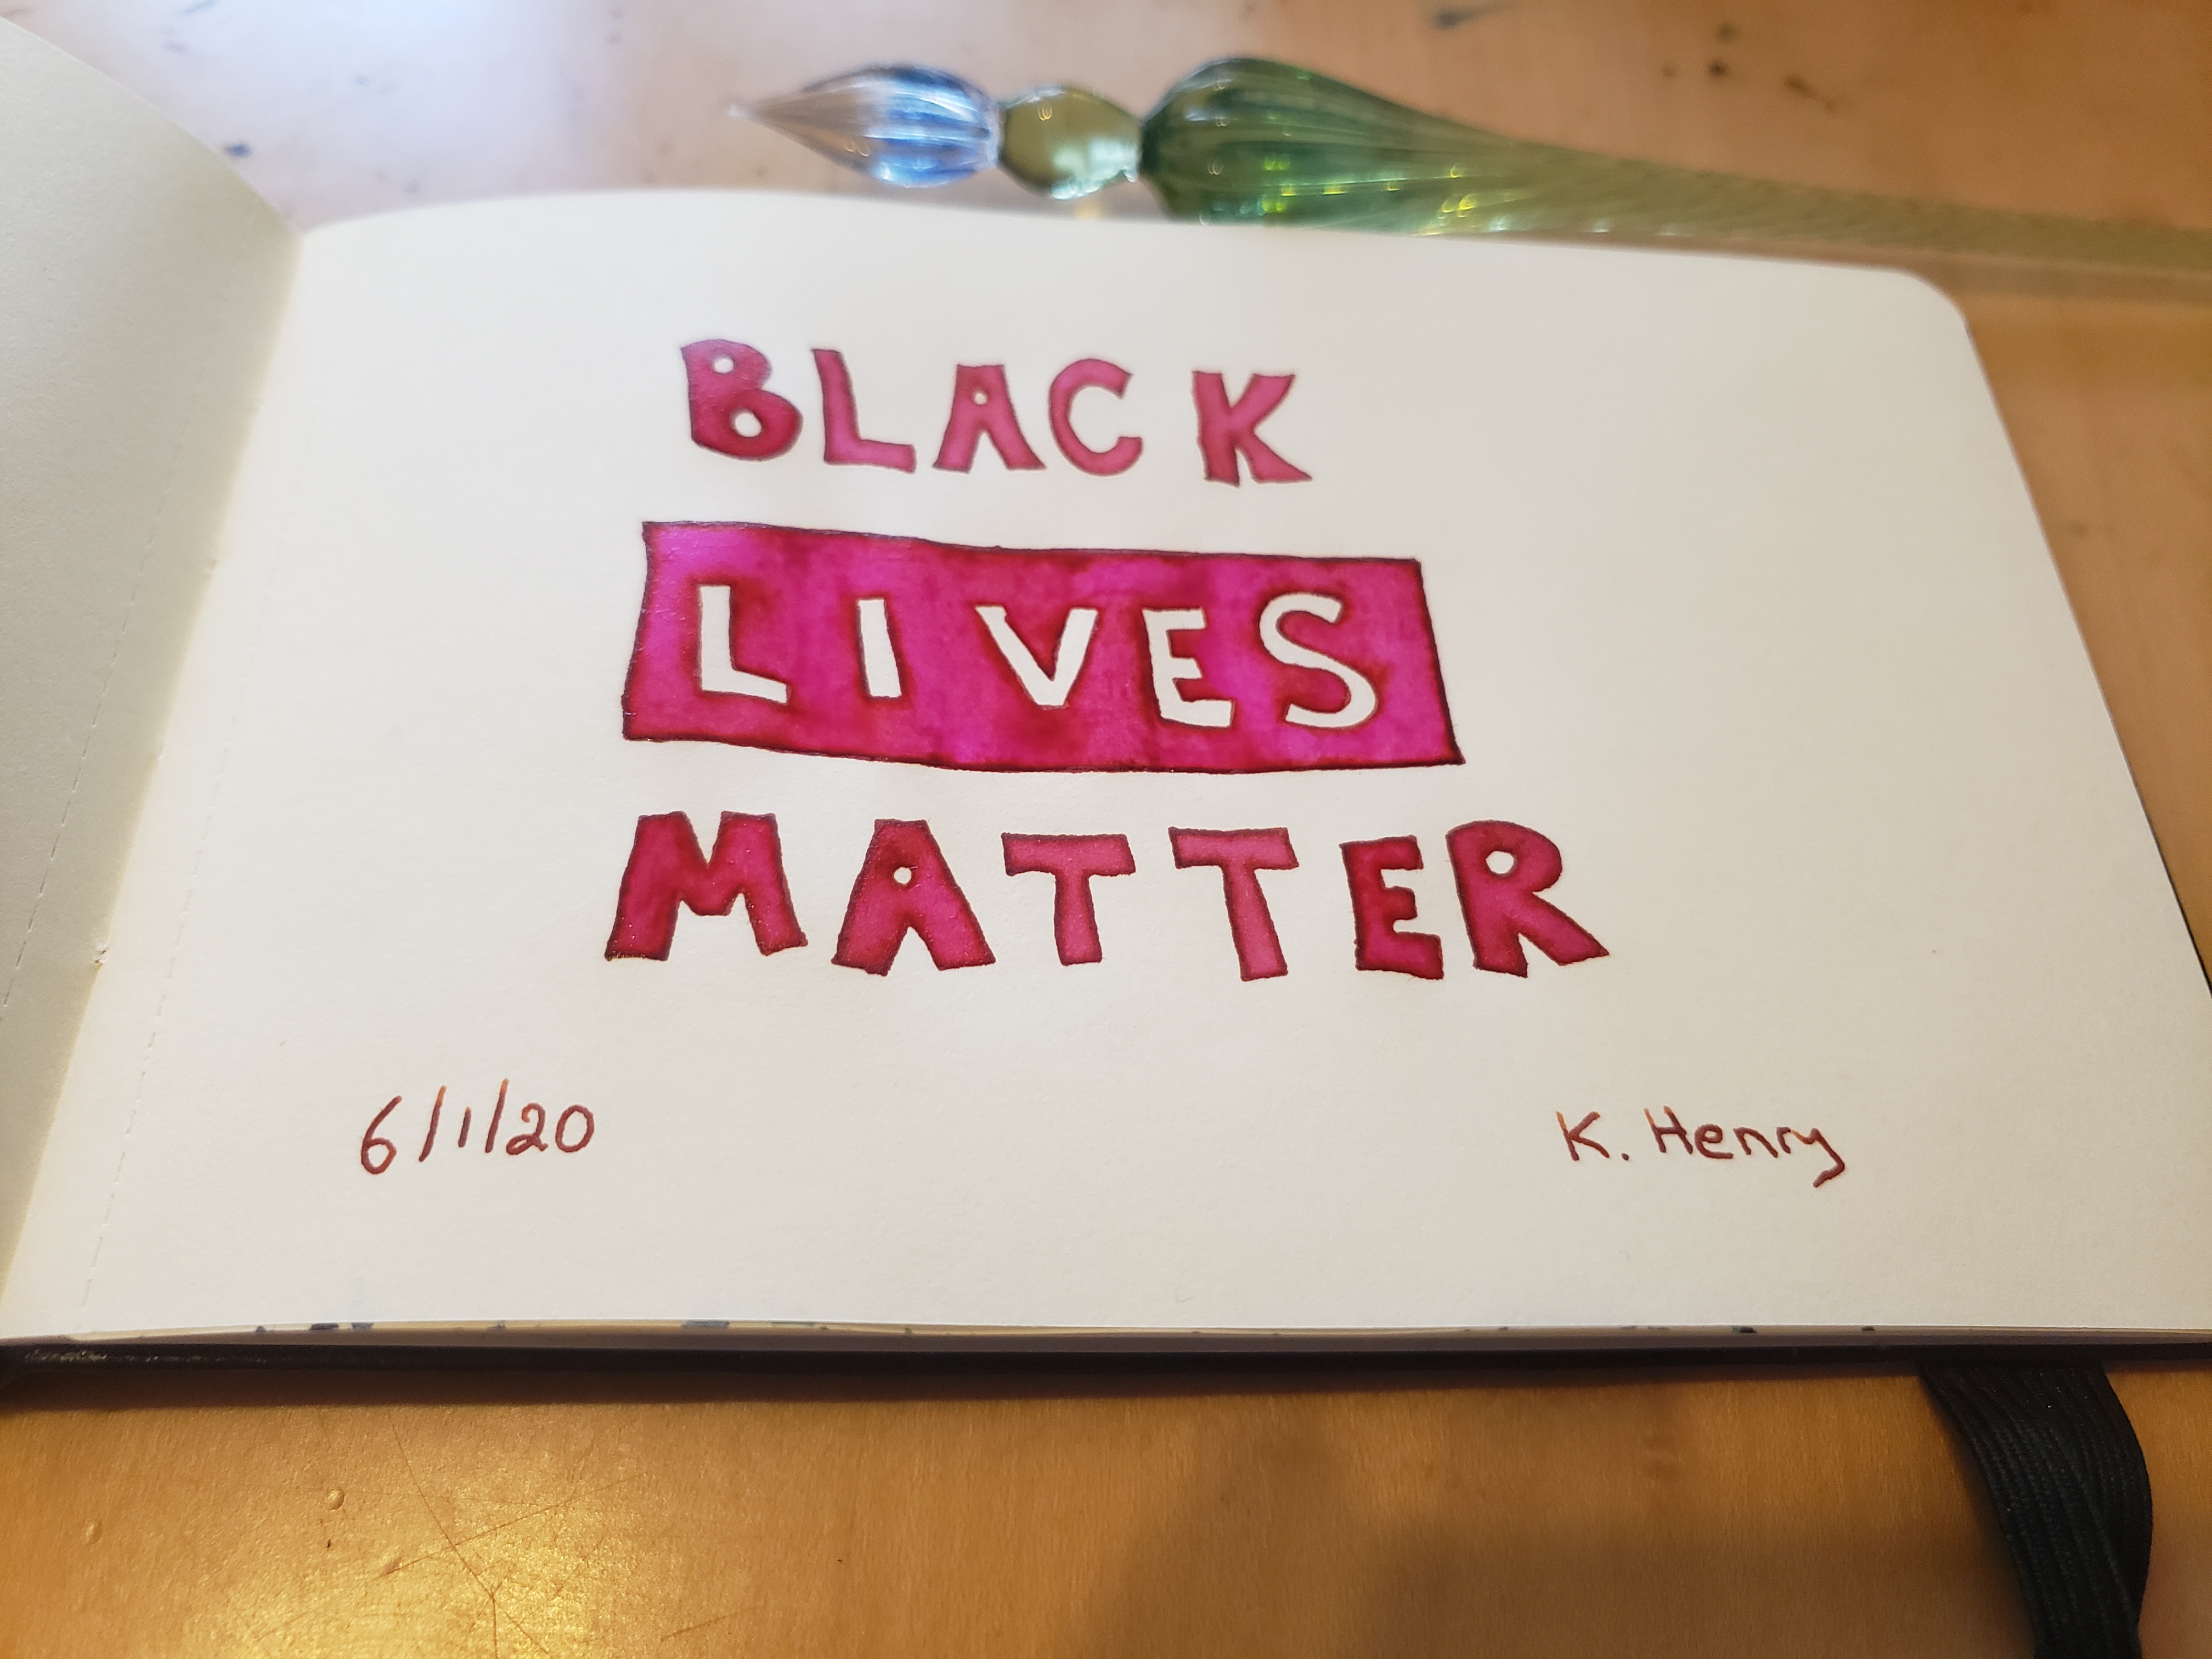 BLACK
LIVES
MATTER
6/1/20
K. Henry